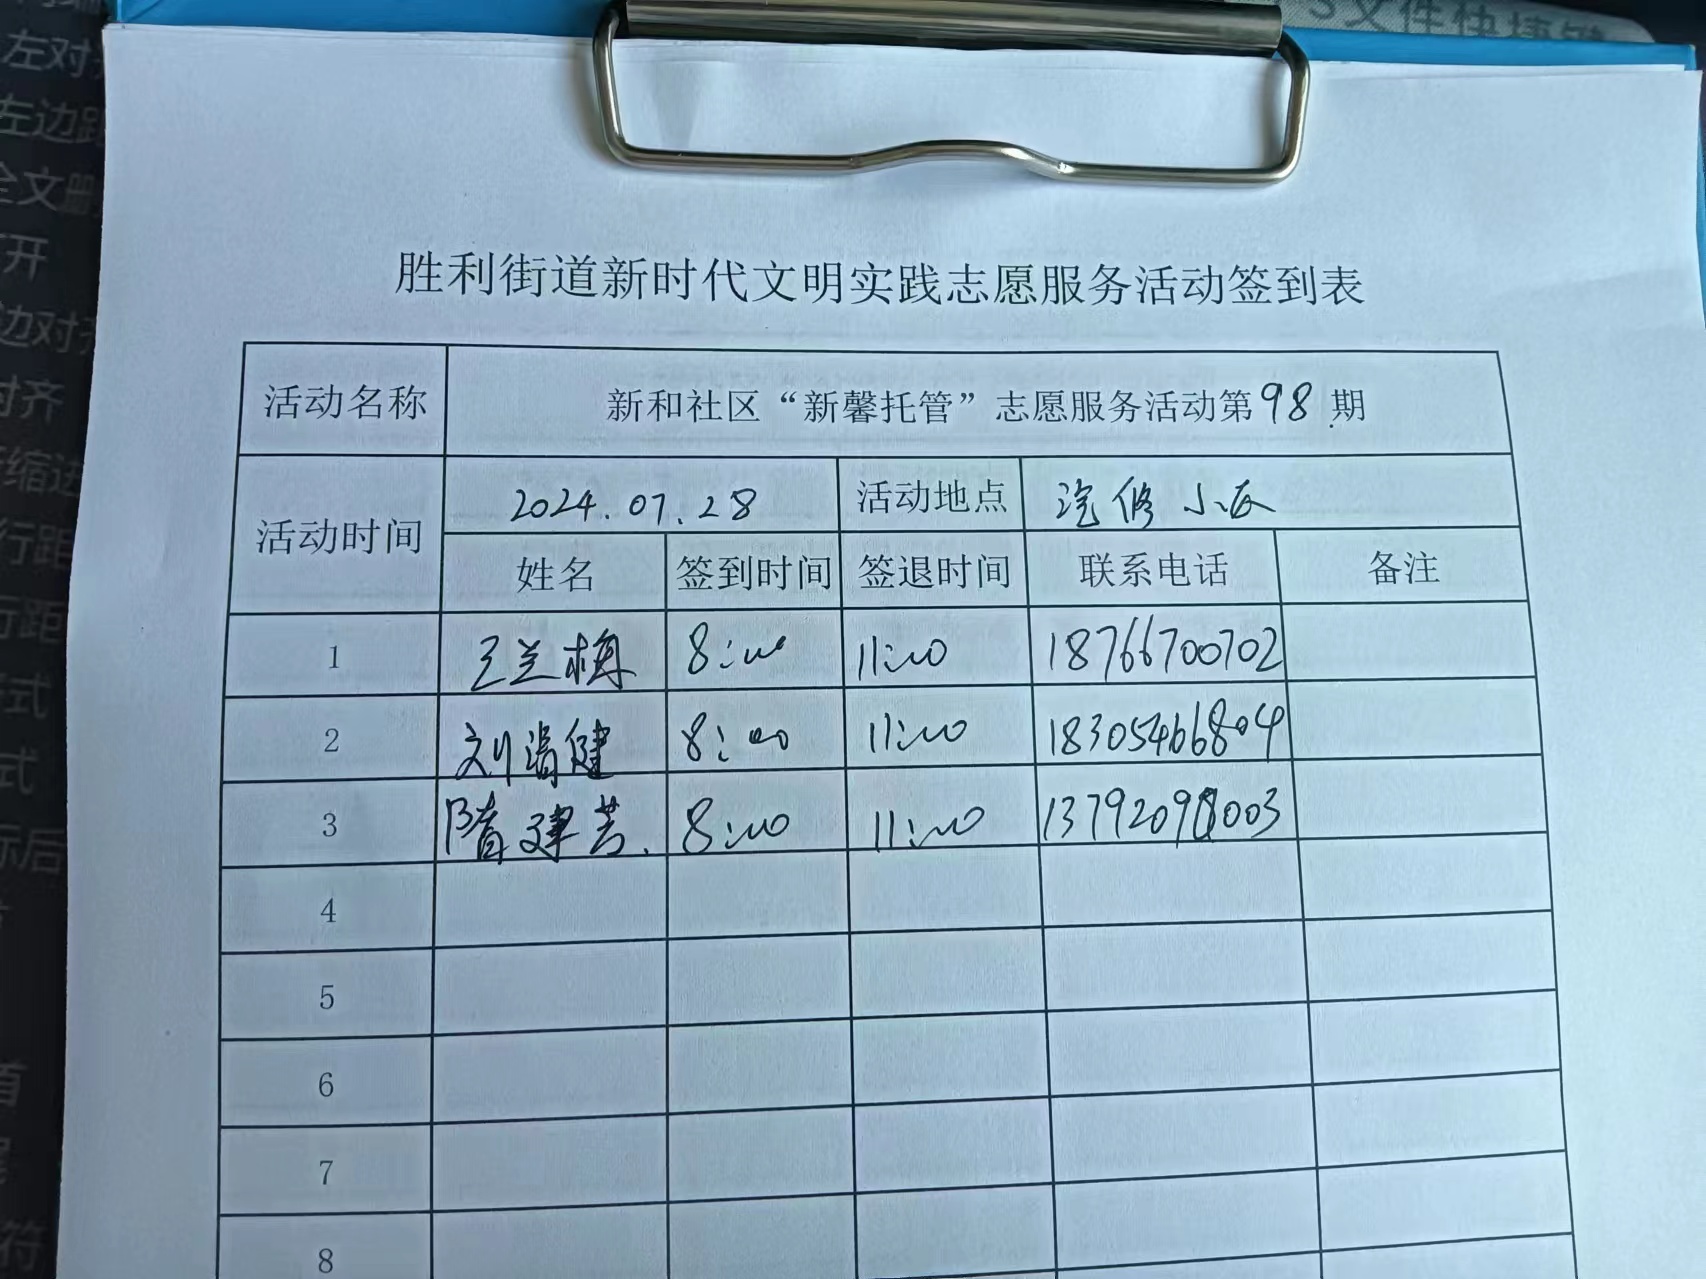 S文件快捷键
左对齐
左边距
全文删
打开
边对齐
对齐
缩进
行距
行距
式
式
标后
首
符
胜利街道新时代文明实践志愿服务活动签到表
活动名称 新和社区“新馨托管”志愿服务活动第98期
活动时间 2024.07.28 活动地点 汽修小区
姓名 签到时间 签退时间 联系电话 备注
1 王兰梅 8:00 11:00 18766700702
2 刘 健 8:00 11:00 18305466804
3 隋建芳 8:00 11:00 13792098003
4
5
6
7
8